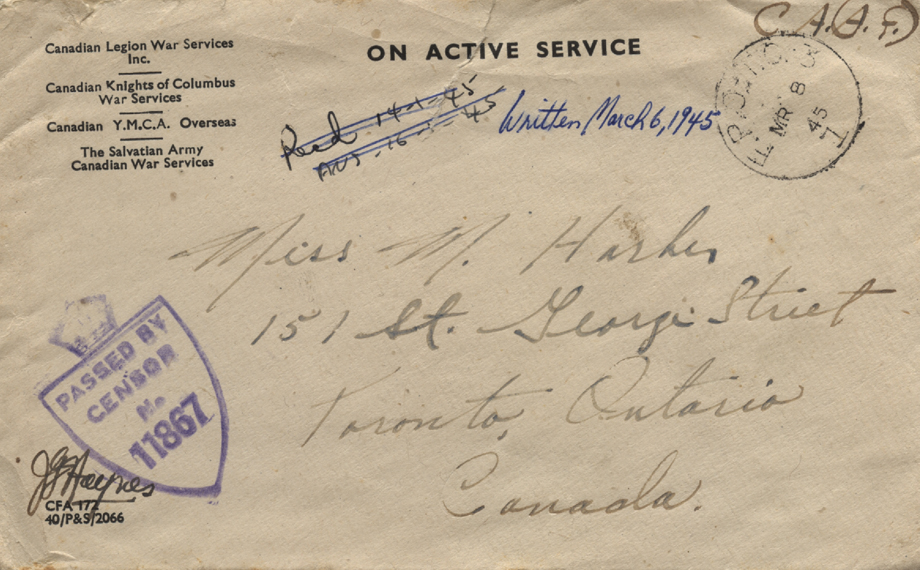 C.A.(A.F.)
Canadian Legion War Services
Inc.
ON ACTIVE SERVICE
Canadian Knights of Columbus
War Services
Canadian Y.M.C.A. Overseas
The Salvatian Army
Canadian War Services
Recd 14-1-45
Ans-16-1-45
Written March 6, 1945
MR 8
45
Miss M. Harker
151 St. George Street
Toronto, Ontario
Canada.
PASSED BY
CENSOR
No
11867
CFA 172
40/P&S/2066